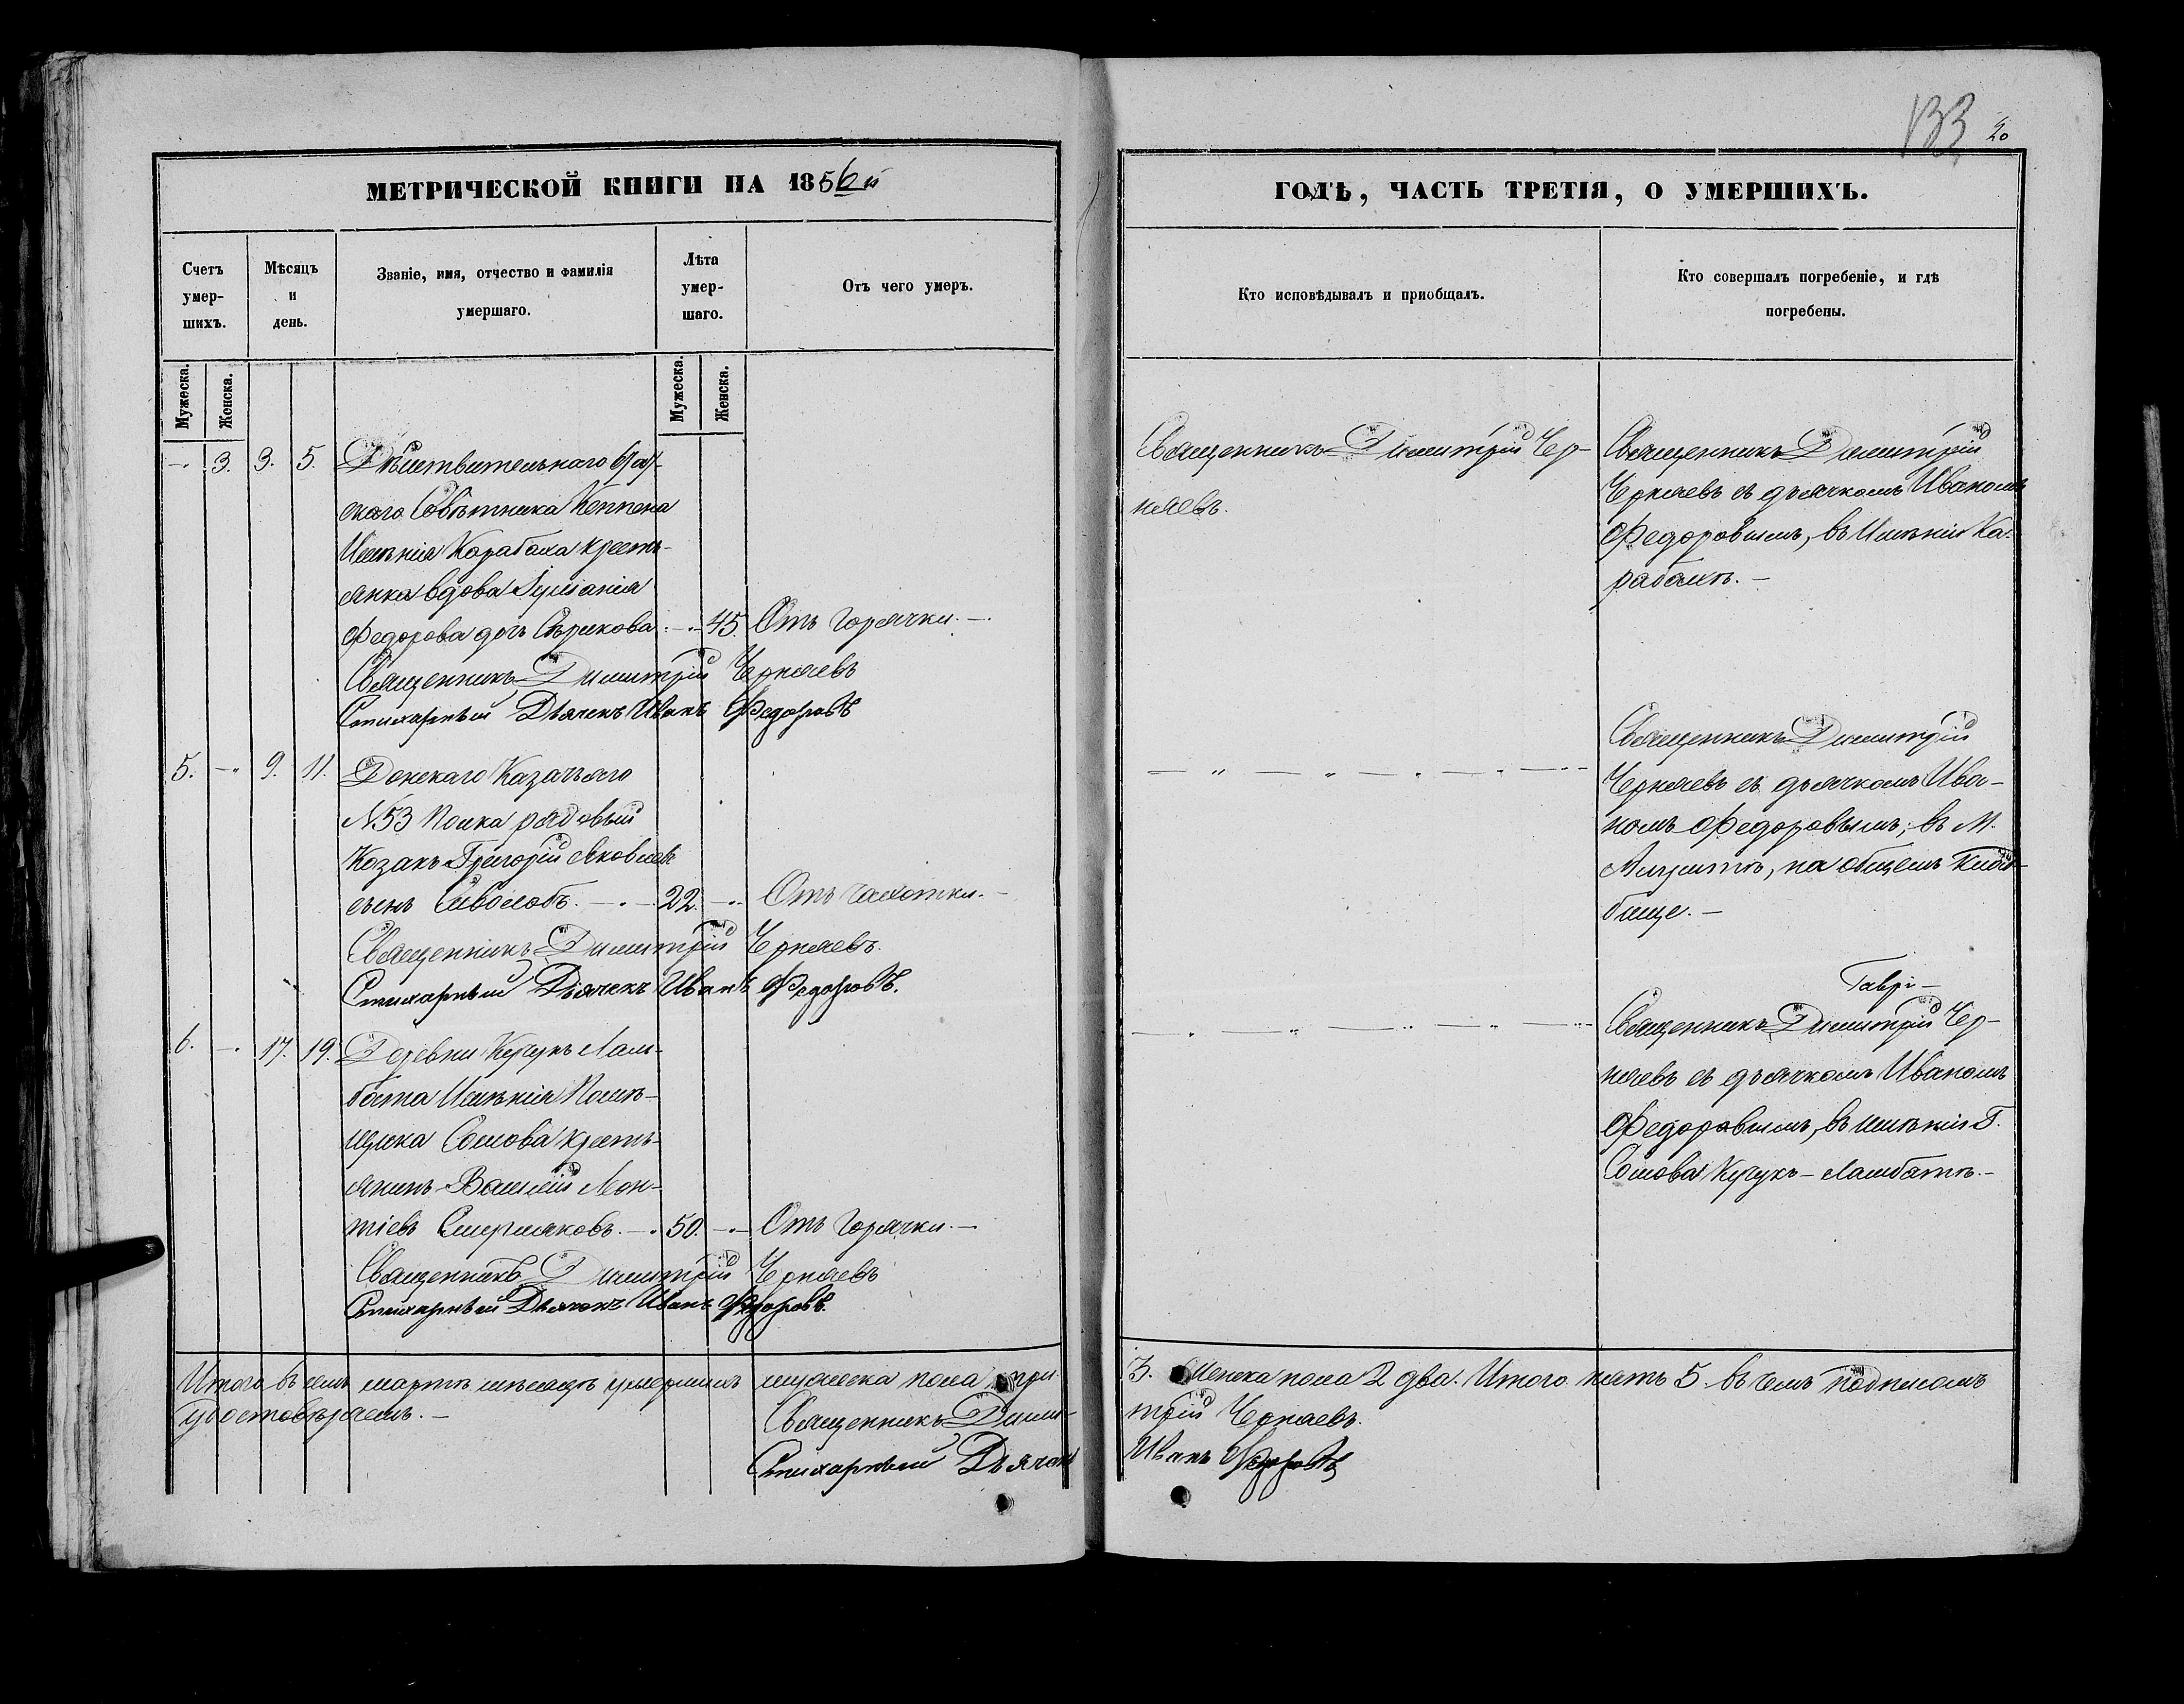 133
20
МЕТРИЧЕСКОЙ КНИГИ НА 1856й
ГОДѢ, ЧАСТЬ ТРЕТІЯ, О УМЕРШИХЪ.
Счетъ умер-шихъ.
Мужеска. Женска.
Мѣсяцъ и день.
Званіе, имя, отчество и фамилія умершаго.
Лѣта умер-шаго.
Мужеска. Женска.
Отъ чего умеръ.
Кто исповѣдывалъ и приобщалъ.
Кто совершалъ погребеніе, и гдѣ погребены.
3. 3. 5. Дѣйствительнаго Стат-
скаго Совѣтника Кеппена
Имѣнія Карабаха кресть-
янка вдова
Федорова дочь 45. Отъ горячки.
Священникъ Димитрій Черняевъ
Стихарный Дьячекъ Иванъ Федоровъ
Священникъ Димитрій Чер-
няевъ.
Священникъ Димитрій
Черняевъ съ дьячкомъ Иваномъ
Федоровымъ, въ Имѣніи Ка-
рабахѣ.
5. 9. 11. Донскаго Казачьяго
№53 Полка рядовый
Козакъ Григорій Яковлевъ
сынъ Сиволобъ. 22. Отъ чахотки.
Священникъ Димитрій Черняевъ.
Стихарный Дьячекъ Иванъ Федоровъ.
Священникъ Димитрій
Черняевъ съ дьячкомъ Ива-
номъ Федоровымъ; въ М.
Алуштѣ, на общемъ клад-
бище.
6. 17. 19. Деревни Кучукъ Лам-
бата Имѣнія Помѣ-
щика Сомова кресть-
янинъ Василій Леон-
тіевъ 50. Отъ горячки.
Священникъ Димитрій Черняевъ
Стихарный Дьячекъ Иванъ Федоровъ.
Гаврі-
Священникъ Димитрій Чер-
няевъ съ дьячкомъ Иваномъ
Федоровымъ, въ имѣніи Г.
Сомова Кучукъ-Ламбатѣ.
Итого въ семъ мартѣ мѣсяцѣ умершихъ мужеска пола три
3. Женска пола 2 два. Итого пять 5. въ чемъ подписомъ
удостовѣряемъ.
Священникъ Димитрій Черняевъ.
Стихарный Дьячекъ Иванъ Федоровъ